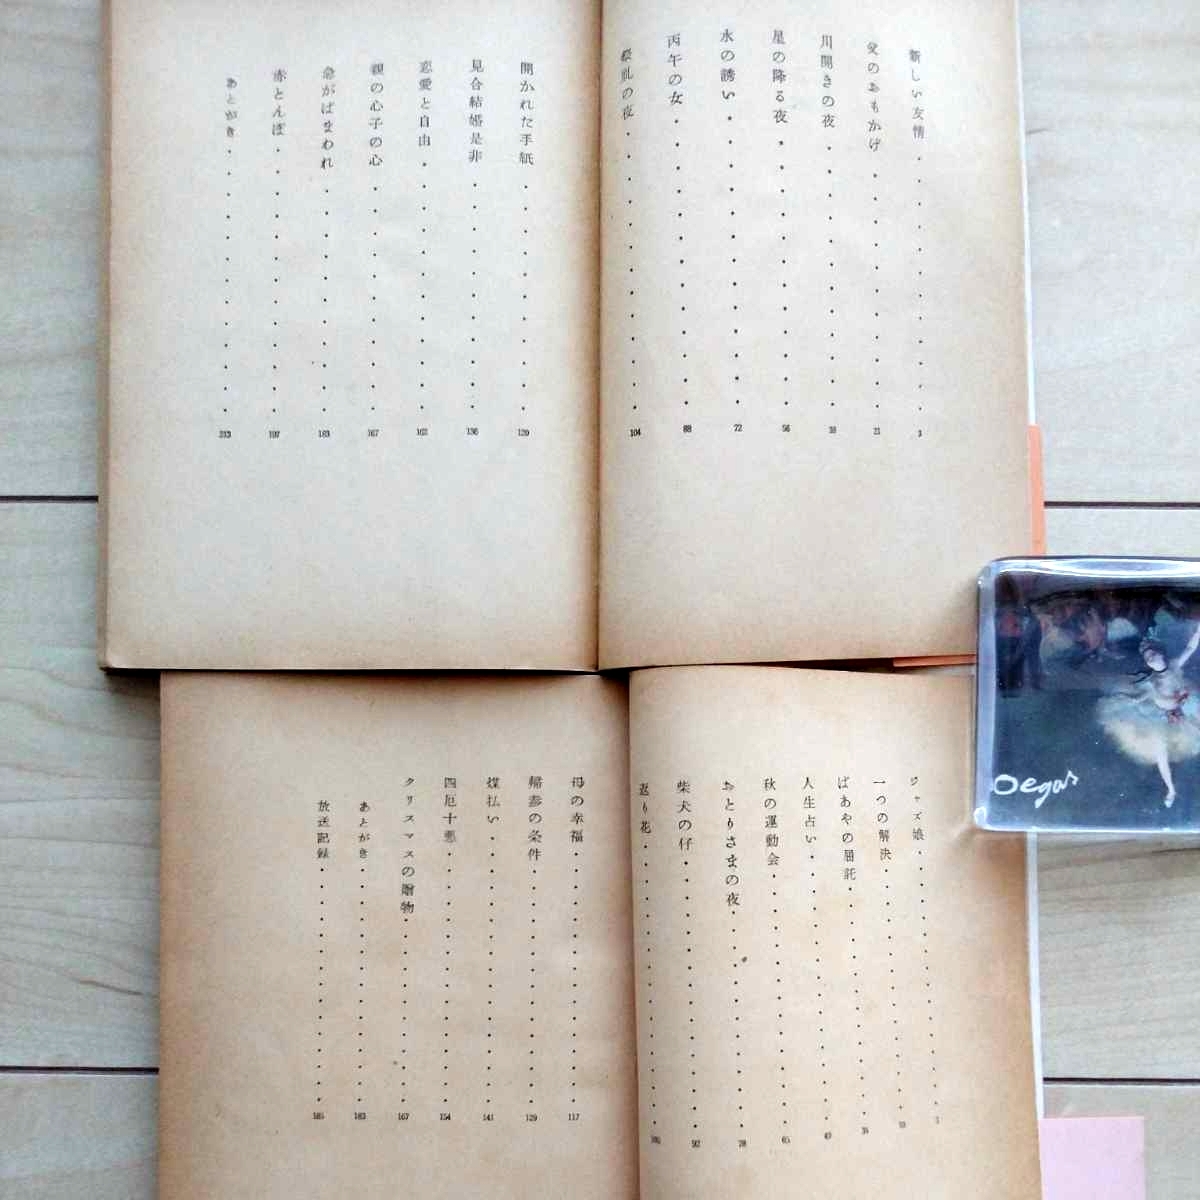 新しい友情 3
愛のおもかげ 21
川開きの夜
星の降る夜 56
水の誘い 72
丙午の女 88
祭乱の夜 104
開かれた手紙 120
見合結婚是非 136
恋愛と自由
親の心子の心 167
命がばまわれ 183
赤とんぼ 197
あとがき 213
ジャズ娘
一つの解決
ばあやの屈託
人生占い
秋の運動会 65
おとりさまの夜
柴犬の仔 92
返り花
母の幸福 117
帰参の条件 129
煤払い 141
四厄十悪 154
クリスマスの贈物 167
あとがき 183
放送記録 185
Degas